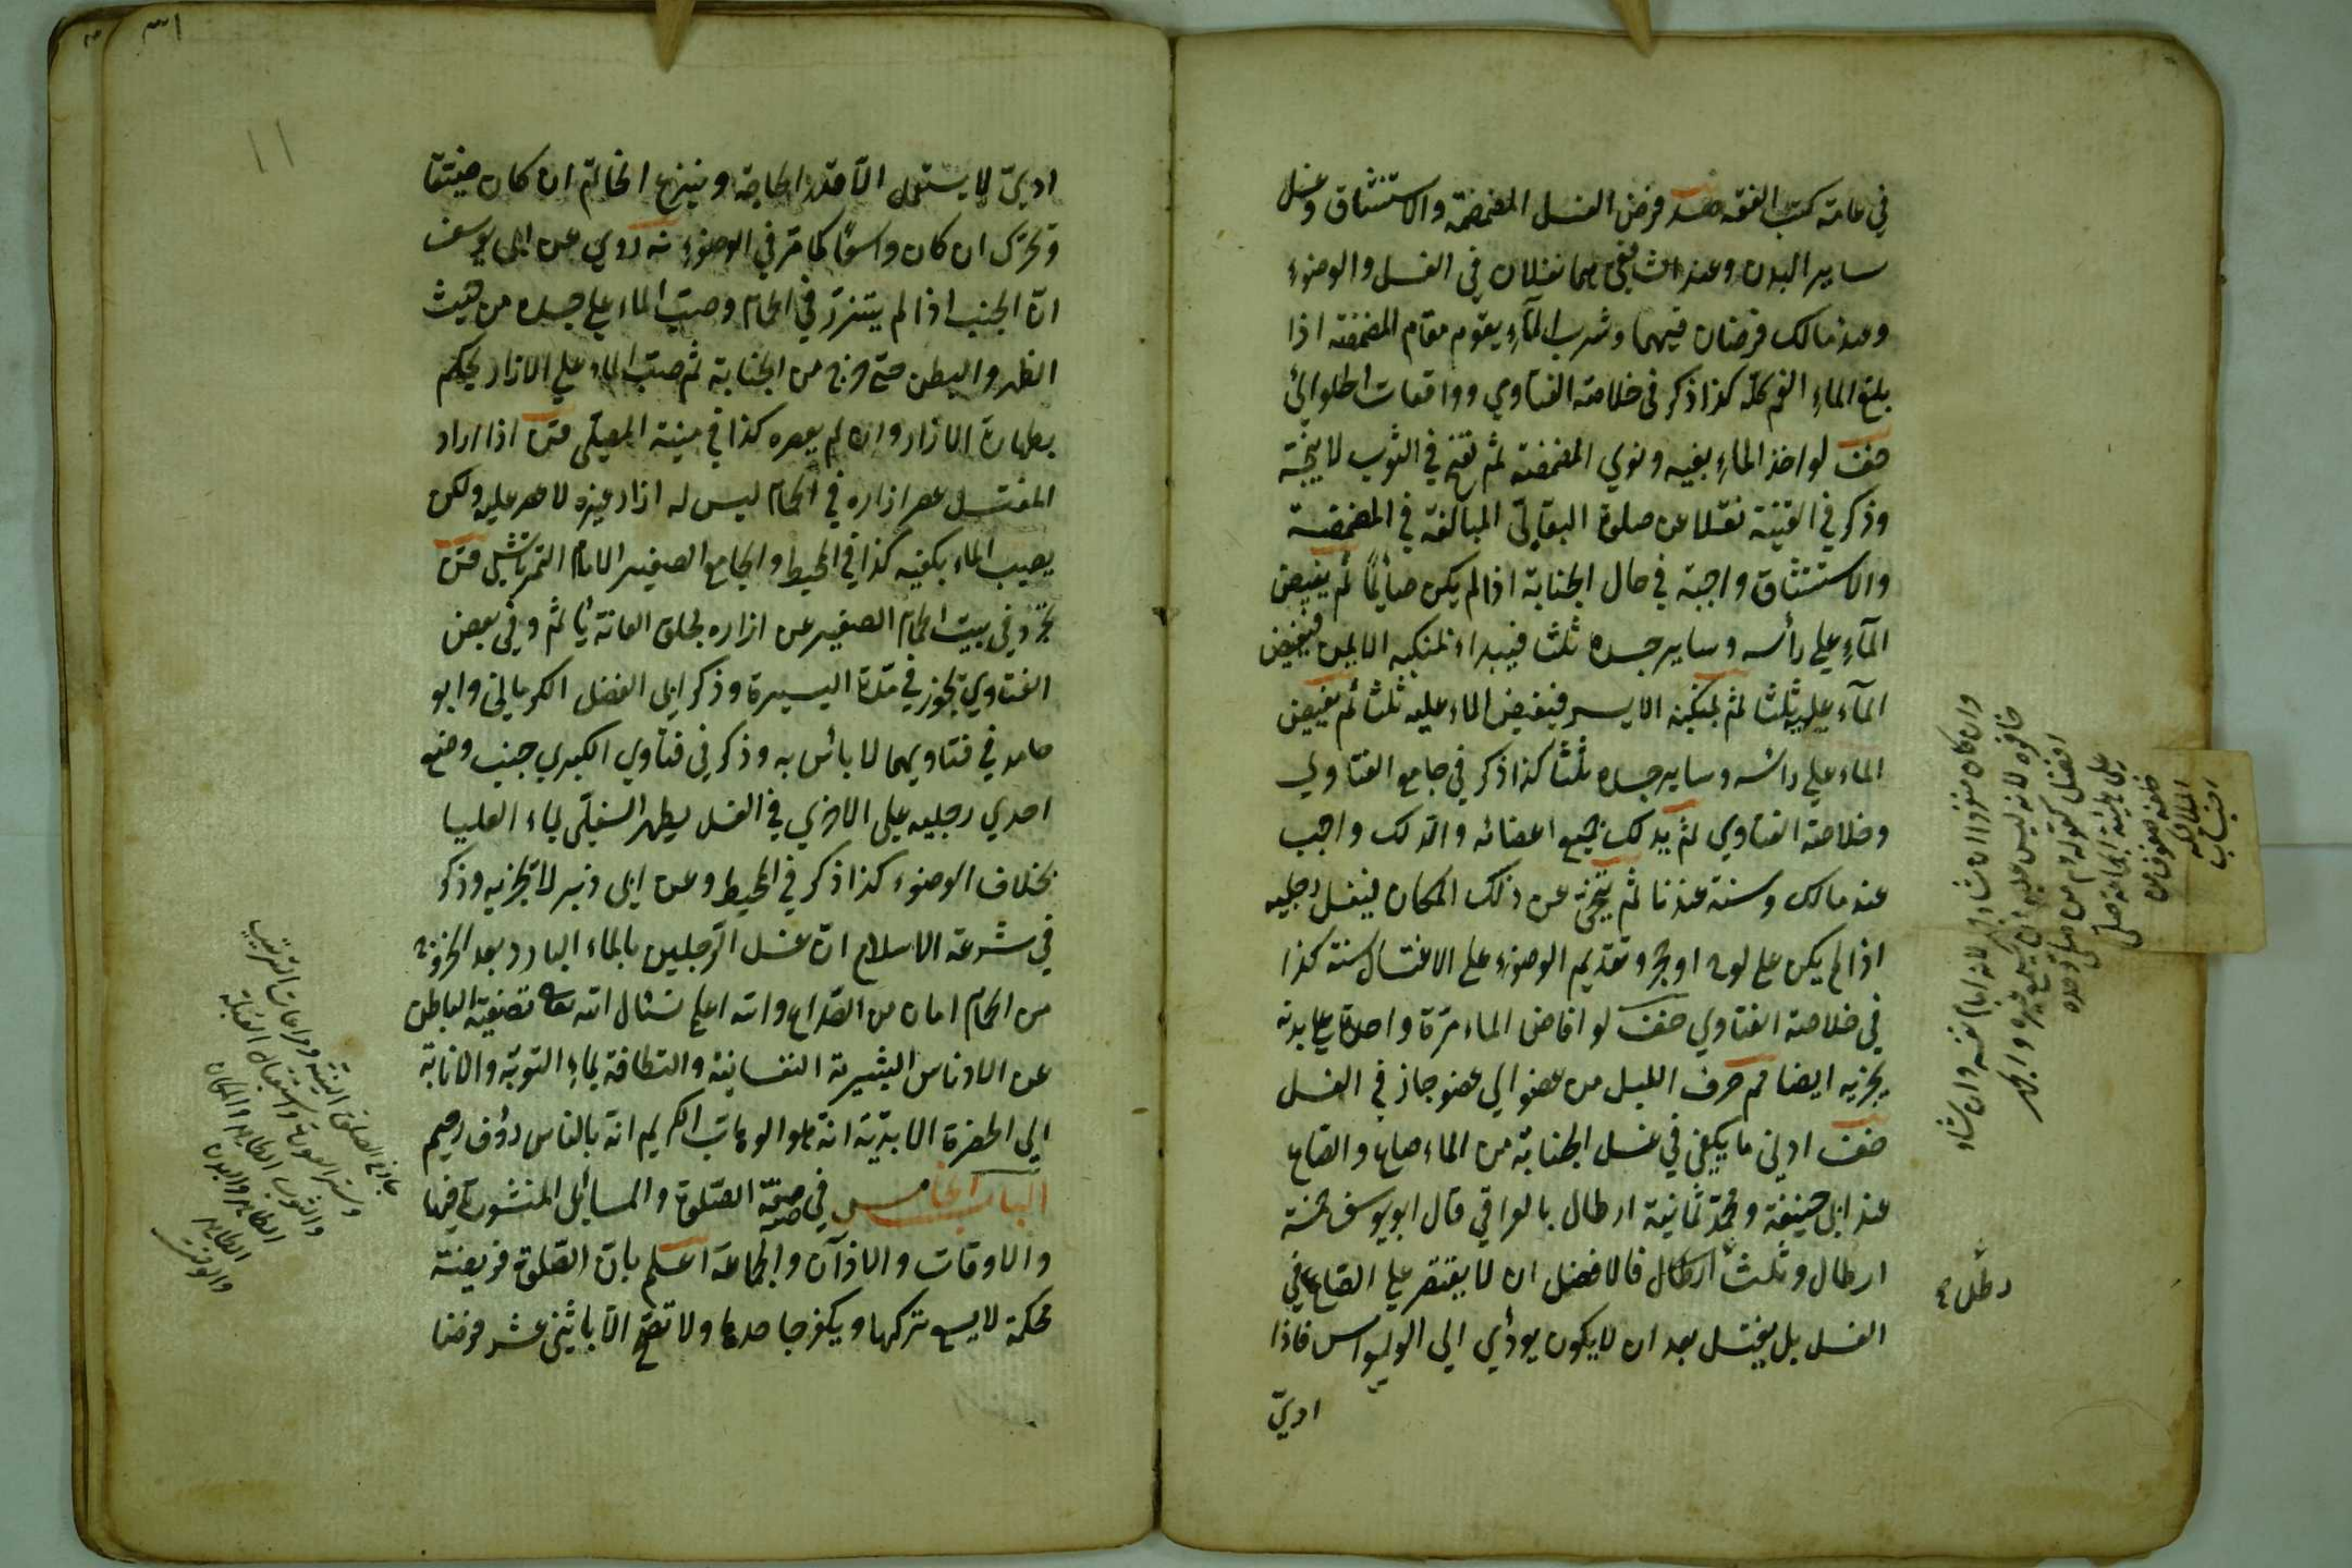 في عامة كتب الفقه فرض الغسل المضمضة والاستنشاق وغسل
ساير البدن وعند الشافعي هما نفلان في الغسل والوضوء
وعند مالك فرضان فيهما وشرب الماء يقوم مقام المضمضة اذا
بلغ الماء الفم كله كذا ذكر في خلاصة الفتاوي وواقعات الحلوائي
لو اخذ الماء بفيه ونوي المضمضة ثم في الثوب لا ينجسه
وذكر في القنية نقلا عن صلوة البقالي المبالغة في المضمضة
والاستنشاق واجبة في حال الجنابة اذا لم يكن صائما ثم يفيض
الماء علي رأسه وساير جسده ثلثا فيبداء بمنكبه الايمن فيفيض
الماء عليه ثلثا ثم بمنكبه الايسر فيفيض الماء عليه ثلثا ثم يفيض
الماء علي رائسه وساير جسده ثلثا كذا ذكر في جامع الفتاوي
وخلاصة الفتاوي ثم يدلك جميع اعضائه والدلك واجب
عند مالك وسنة عندنا ثم يتنحي عن ذلك المكان فيغسل رجليه
اذا لم يكن علي لوح او حجر وتقديم الوضوء علي الاغتسال سنة كذا
في خلاصة الفتاوي لو افاض الماء مرة واحدة علي بدنه
يجزيه ايضا صرف البلل من عضو الي عضو جاز في الغسل
ادني ما يكفي في غسل الجنابة من الماء صاع والصاع
عند ابي حنيفة ومحمد ثمانية ارطال بالعراقي قال ابو يوسف خمسة
ارطال وثلث ارطال فالافضل ان لا يقتصر علي الصاع في
الغسل بل يغتسل بعد ان لا يكون يودي الي الوسواس فاذا
ادي
وان كان منفردا ان شاء جهر لانه امام نفسه وان شاء
خافت لانه ليس عليه ان يسمع غيره والجهر
افضل من صلي وحده
علي هيئة الجماعة صلي
خلفه صفوف من
الملائكة
رطل
ادي لا يستعمل الا قدر الحاجة وينزع الخاتم ان كان ضيقا
وتحرك ان كان واسعا كما مر في الوضوء روي عن ابي يوسف
ان الجنب اذا لم يتنزر في الحمام وصب الماء علي جسده من حيث
الظهر والبطن حتي خرج من الجنابة ثم صب الماء علي الازار يحكم
بطهارة الازار وان لم يعصره كذا في منية المصلي اذا اراد
المغتسل عصر ازاره في الحمام ليس له ازار غيره لا عصر عليه ولكن
يصيب الماء يكفيه كذا في المحيط والجامع الصغير الامام التمرتاشي
تجرد في بيت الحمام الصغير عن ازاره لحلق العانة ياثم وفي بعض
الفتاوي تجوز في مدة اليسيرة وذكر ابي الفضل الكرماني وابو
حامد في فتاويهما لا بائس به وذكر في فتاوي الكبري جنب وضع
احدي رجليه علي الاخري في الغسل يطهر السفلي بماء العليا
بخلاف الوضوء كذا ذكر في المحيط وعن ابي لا تجزيه وذكر
في شرعة الاسلام ان غسل الرجلين بالماء البارد بعد الخروج
من الحمام امان من الصداع والله اعلم نسئال الله تعالي تصفية الباطن
عن الادناس البشيرية النفسانية والنظافة بماء التوبة والانابة
الي الحضرة الابدية انه هو الوهاب الكريم انه بالناس رؤف رحيم
الباب الخامس في صحة الصلوة والمسائل المنثورة فيها
والاوقات والاذان والجماعة اعلم بان الصلوة فريضة
محكمة لا يسع تركها ويكفر جاحدها ولا تصح الا باثني عشر فرضا
الصلوة النية ومراعات الترتيب
وستر العورة واستقبال القبلة
والثوب الطاهر والمكان
الطاهر والبدن
الطاهر
والوقت
١١